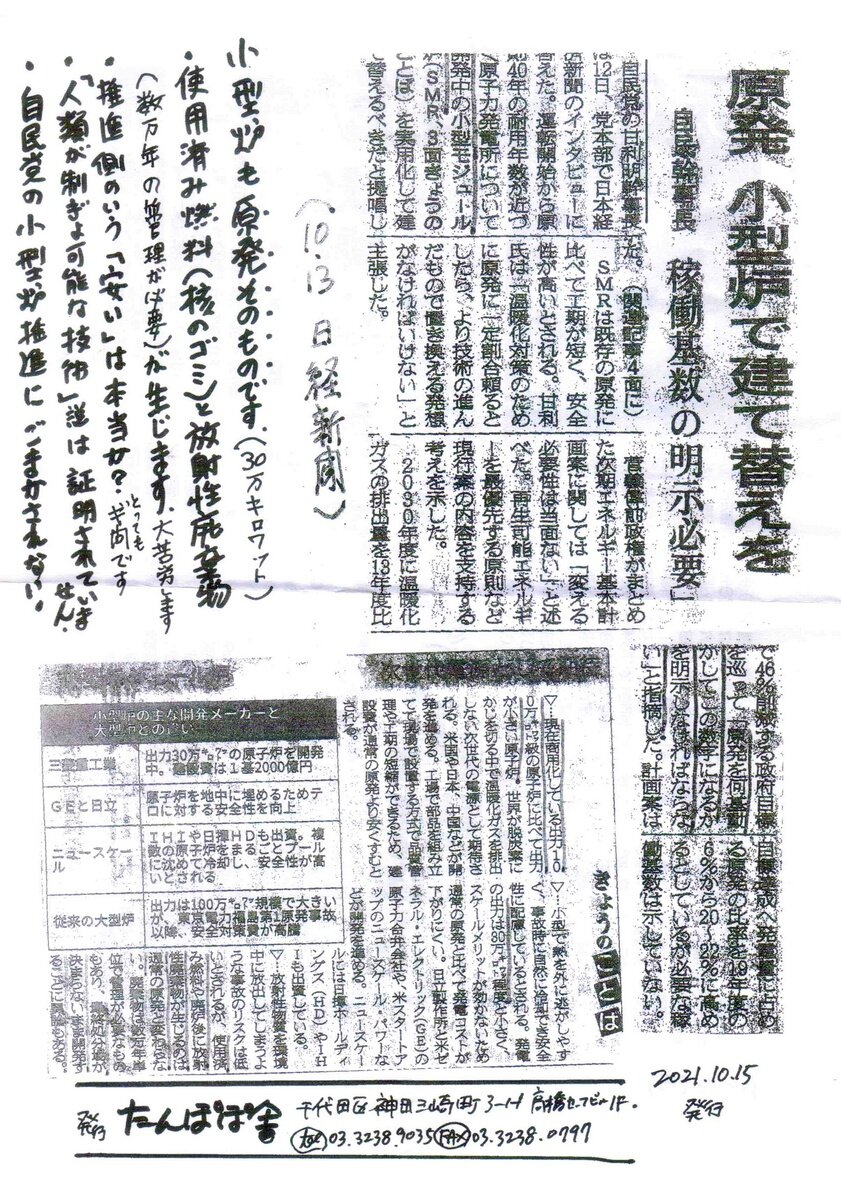 原発 小型炉で建て替えを
自民幹事長 稼働基数の明示必要」
自民党の甘利明幹事長
は12日、党本部で日本経
済新聞のインタビューに
答えた。運転開始から原
則40年の耐用年数が近づ
く原子力発電所について
開発中の小型モジュール
炉(SMR、3面きょうの
ことば)を実用化して建
て替えるべきだと提唱し
た。(関連記事4面に)
SMRは既存の原発に
比べて工期が短く、安全
性が高いとされる。甘利
氏は「温暖化対策のため
に原発に一定割合頼ると
したら、より技術の進ん
だもので置き換える発想
がなければいけない」と
主張した。
菅義偉前政権がまとめ
た次期エネルギー基本計
画案に関しては「変える
必要性は当面ない」と述
べた。再生可能エネルギ
ーを最優先する原則など
現行案の内容を支持する
考えを示した。
2030年度に温暖化
ガスの排出量を13年度比
で46%削減する政府目標
を巡って「原発を何基動
かしてこの数字になるか
を明示しなければならな
い」と指摘した。計画案は
目標達成へ発電量に占め
る原発の比率を19年度の
6%から20〜22%に高め
るとしているが必要な稼
働基数は示していない。
(10.13 日経新聞)
小型炉も原発そのものです。(30万キロワット)
・使用済み燃料(核のゴミ)と放射性廃棄物
(数万年の管理が必要)が生じます。大苦労します
・推進側のいう「安い」は本当か?とってもギ問です
・「人類が制ぎょ可能な技術」説は証明されていません。
・自民党の小型炉推進にごまかされない。
きょうのことば
▽…現在商用化している出力10
0万㌔㍗級の原子炉に比べて出力
が小さい原子炉。世界が脱炭素に
かじを切る中で温暖化ガスを排出
しない次世代の電源として期待さ
れる。米国や日本、中国などが開
発を進める。工場で部品を組み立
てて現場で設置する方式で品質管
理や工期の短縮ができるため、建
設費が通常の原発より安くすむと
される。
▽…小型で熱を外に逃がしやす
く、事故時に自然に冷却できる安全
性に配慮しているとされる。発電
の出力は30万㌔㍗程度と小さく、
スケールメリットが効かないため
通常の原発と比べて発電コストが
下がりにくい。日立製作所と米ゼ
ネラル・エレクトリック(GE)の
原子力合弁会社や、米スタートア
ップのニュースケール・パワーな
どが開発を進める。ニュースケー
ルには日揮ホールディ
ングス(HD)やIH
Iも出資している。
▽…放射性物質を環境
中に放出してしまうよ
うな事故のリスクは低
いとされるが、使用済
み燃料や廃炉後に放射
性廃棄物が生じるのは
通常の原発と変わらな
い。廃棄物は数万年単
位で管理が必要なもの
もあり、最終処分場が
決まらないまま開発す
ることに異論もある。
小型炉の主な開発メーカーと
大型炉との違い
三菱重工業 出力30万㌔㍗の原子炉を開発
中。建設費は1基2000億円
GEと日立 原子炉を地中に埋めるためテ
ロに対する安全性を向上
ニュースケール IHIや日揮HDも出資。複
数の原子炉を丸ごとプール
に沈めて冷却し、安全性が高い
従来の大型炉 出力は100万㌔㍗規模で大きい
が、東京電力福島第1原発事故
以降、安全対策費が高騰
2021.10.15
発行
発行 たんぽぽ舎 千代田区神田三崎町3-1-1 高橋セーフビル1F.
TEL 03.3238.9035 FAX 03.3238.0797